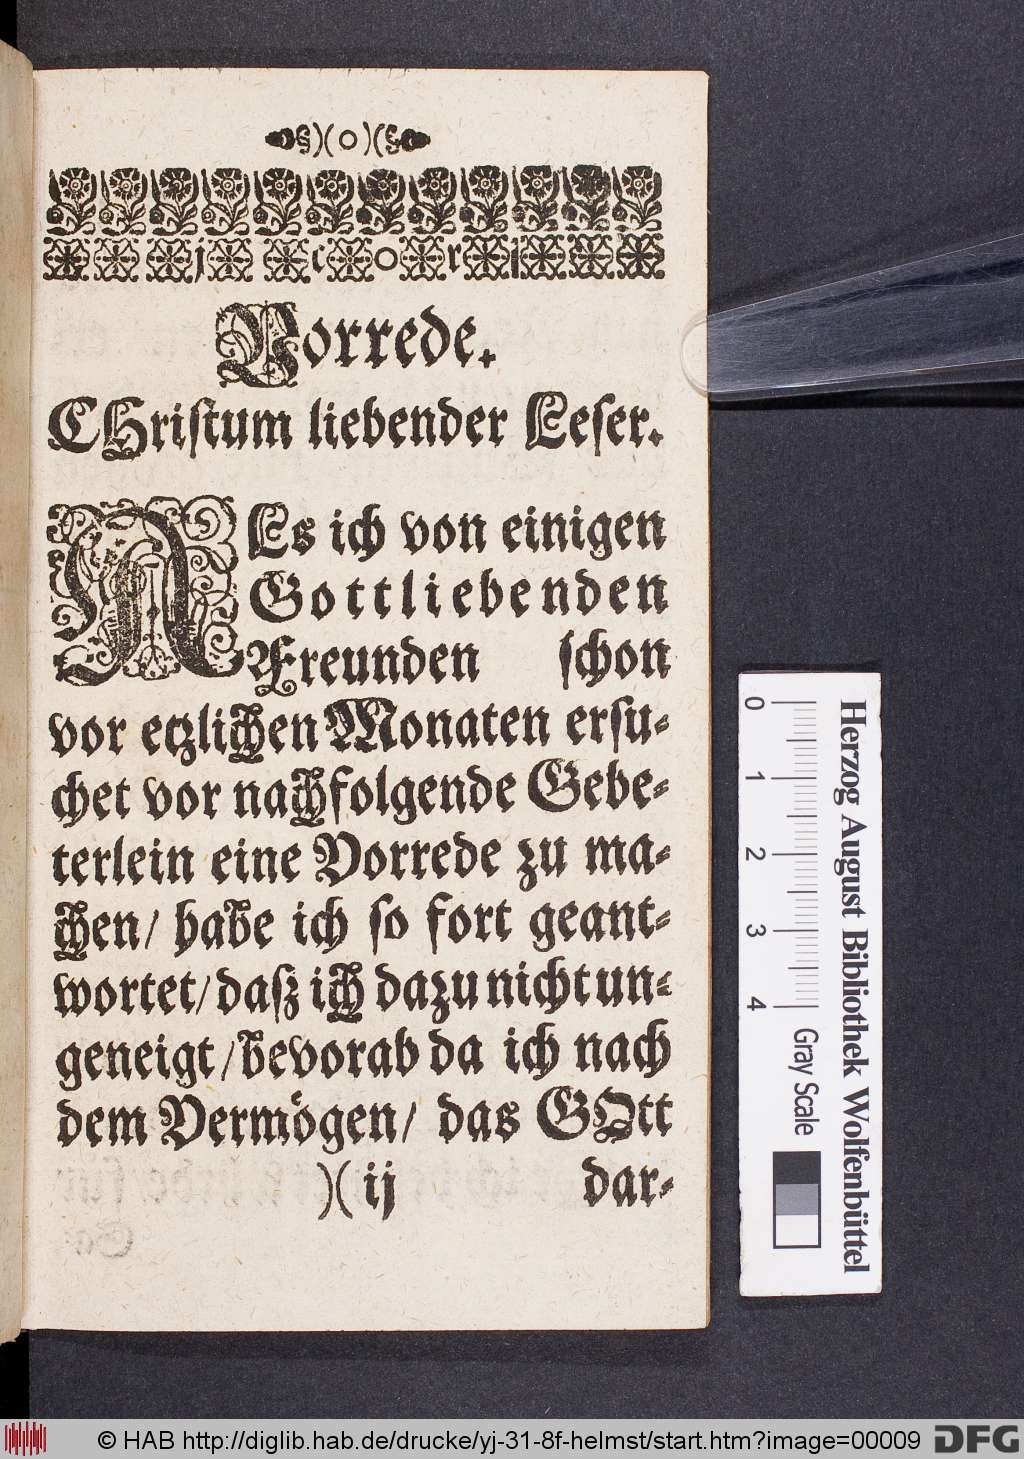 )(o)(
Vorrede.
CHristum liebender Leser.
AEs ich von einigen
Gottliebenden
Freunden schon
vor etzlichen Monaten ersu-
chet vor nachfolgende Gebe-
terlein eine Vorrede zu ma-
chen/ habe ich so fort geant-
wortet/ daß ich dazu nicht un-
geneigt/ bevorab da ich nach
dem Vermögen/ das GOtt
)( ij dar-
Herzog August Bibliothek Wolfenbüttel
0 1 2 3 4 Gray Scale
© HAB http://diglib.hab.de/drucke/yj-31-8f-helmst/start.htm?image=00009
DFG